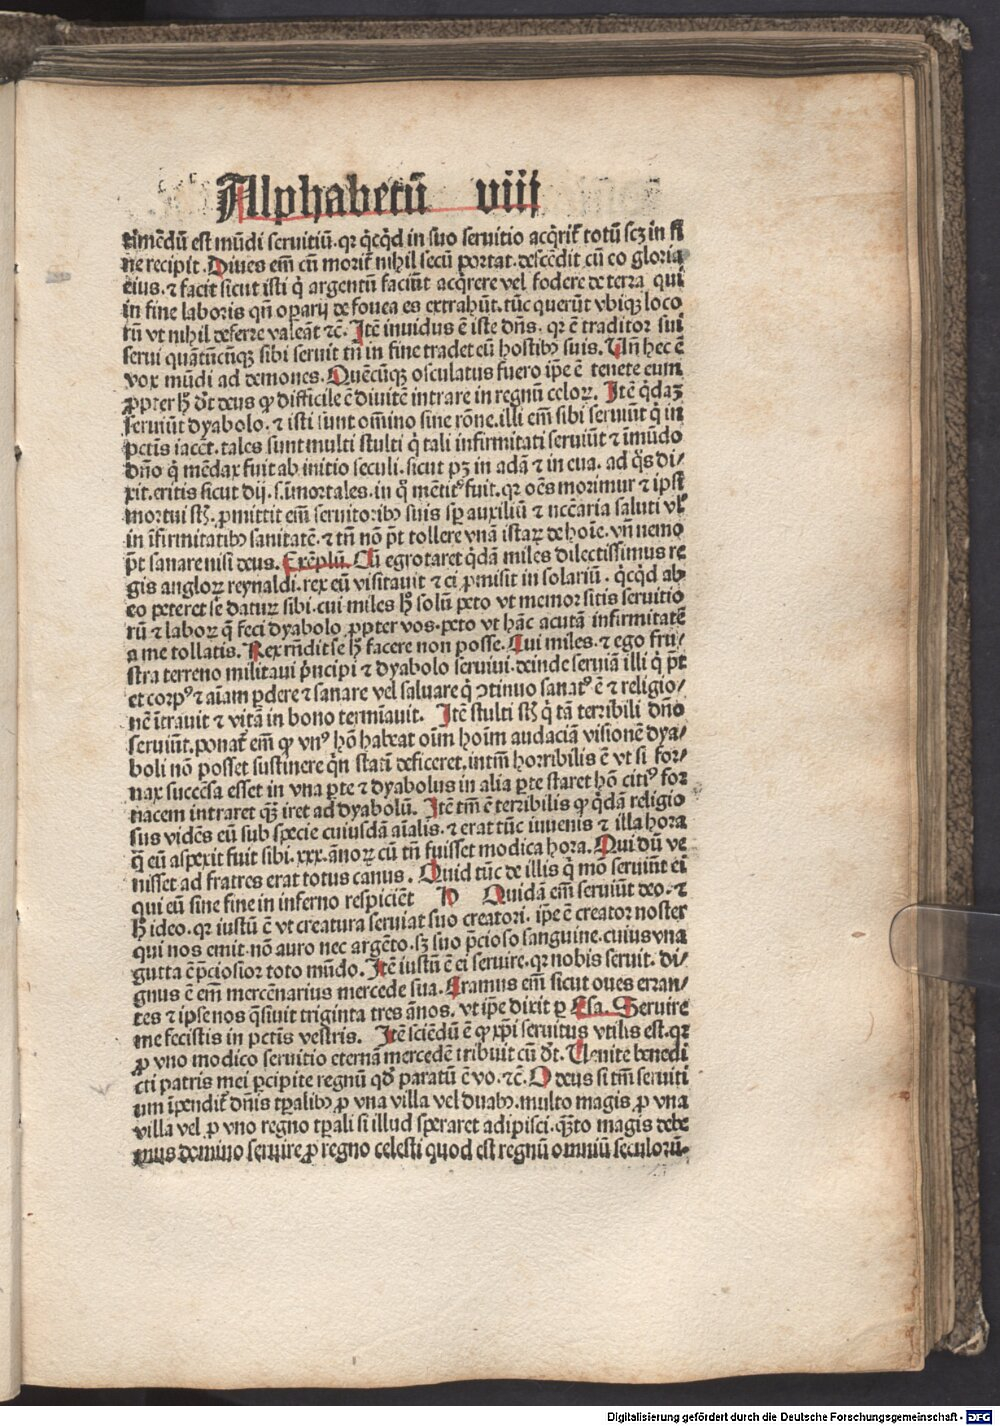 Alphabetū viij
timēdū est mūdi seruitiū. qr q̇cq̇d in suo seruitio acq̇rit᷑ totū scz in fi
ne recipit. Diues em̄ cū morit᷑ nihil secū portat. descēdit cū eo gloria
eius. ⁊ facit sicut isti q̇ argentū faciūt acq̇rere vel fodere de terra qui
in fine laboris qn̄ oꝑarij de fouea es extrahūt. tūc querūt vbiqꝫ loco
rū vt nihil deferre valeāt ⁊c̄. Itē inuidus ē iste dn̄s. qr ē traditor sui
serui quātūcūqꝫ sibi seruit tn̄ in fine tradet eū hostibꝰ suis. Vn̄ hec ē
vox mūdi ad demones. Quēcūqꝫ osculatus fuero ip̄e ē tenete eum
ꝓpter hͦ dt̄ deus ꝙ difficile ē diuitē intrare in regnū celoꝝ. Itē q̇daꝫ
seruiūt dyabolo. ⁊ isti sunt om̄ino sine rōne. illi em̄ sibi seruiūt q̇ in
pctīs iacēt. tales sunt multi stulti q̇ tali infirmitati seruiūt ⁊ īmūdo
dn̄o q̇ mēdax fuit ab initio seculi. sicut pꝫ in adā ⁊ in eua. ad q̊s di/
xit. eritis sicut dij. s. īmortales. in q̊ mētitꝰ fuit. qr oēs morimur ⁊ ipsi
mortui st̄. ꝓmittit em̄ seruitoribꝰ suis sp̄ auxiliū ⁊ nccāria saluti vl᷑
in īfirmitatibꝰ sanitatē. ⁊ tn̄ nō pt̄ tollere vnā istaꝝ de hoīe. vn̄ nemo
pt̄ sanare nisi deus. Exēplū. Cū egrotaret q̇dā miles dilectissimus re
gis angloꝝ reynaldi. rex eū visitauit ⁊ ei ꝓmisit in solariū. q̇cq̇d ab
eo peteret se daturꝝ sibi. cui miles hͦ solū peto vt memor sitis seruitio
rū ⁊ laboꝝ q̄ feci dyabolo ꝓpter vos. peto vt hāc acutā infirmitatē
a me tollatis. Rex rn̄dit se hͦ facere non posse. Cui miles. ⁊ ego fru/
stra terreno militaui pͥncipi ⁊ dyabolo seruiui. deinde seruiā illi q̇ pt̄
et corpꝰ ⁊ aīam ꝑdere ⁊ sanare vel saluare q̇ ↄtinuo sanatꝰ ē ⁊ religio/
nē ītrauit ⁊ vitā in bono termīauit. Itē stulti st̄ q̇ tā terribili dn̄o
seruiūt. ponat᷑ em̄ ꝙ vnꝰ hō habeat oīm hoīm audaciā visionē dya/
boli nō posset sustinere q̇n statī deficeret. intm̄ horribilis ē vt si for/
nax succēsa esset in vna ꝑte ⁊ dyabolus in alia ꝑte staret hō citiꝰ for
nacem intraret qꝫ̄ iret ad dyabolū. Itē tm̄ ē terribilis ꝙ q̇dā religio
sus vidēs eū sub specie cuiusdā aīalis. ⁊ erat tūc iuuenis ⁊ illa hora
q̄ eū aspexit fuit sibi. xxx. ānoꝝ cū tn̄ fuisset modica hora. Qui dū ve
nisset ad fratres erat totus canus. Quid tūc de illis q̇ mō seruiūt ei
qui eū sine fine in inferno respiciēt Quidā em̄ seruiūt deo. ⁊
hͦ ideo. qr iustū ē vt creatura seruiat suo creatori. ip̄e ē creator noster
qui nos emit. nō auro nec argēto. sꝫ suo p̄cioso sanguine. cuius vna
gutta ē p̄ciosior toto mūdo. Itē iustū ē ei seruire. qr nobis seruit. di/
gnus ē em̄ mercēnarius mercede sua. Eramus em̄ sicut oues erran/
tes ⁊ ipse nos q̄siuit triginta tres ānos. vt ip̄e dixit ꝑ Esa. Seruire
me fecistis in pctīs vestris. Itē sciēdū ē ꝙ xp̄i seruitus vtilis est. qr
ꝓ vno modico seruitio eternā mercedē tribuit cū dt̄. Uenite benedi
cti patris mei ꝑcipite regnū qd̄ paratū ē vo. ⁊c̄. O deus si tm̄ seruiti
um īpendit᷑ dn̄is tꝑalibꝰ ꝓ vna villa vel duabꝰ. multo magis ꝓ vna
villa vel ꝓ vno regno tꝑali si illud speraret adipisci. qꝫ̄to magis debe
mus domino seruire ꝓ regno celesti quod est regnū omniū seculorū.
Digitalisierung gefördert durch die Deutsche Forschungsgemeinschaft - DFG